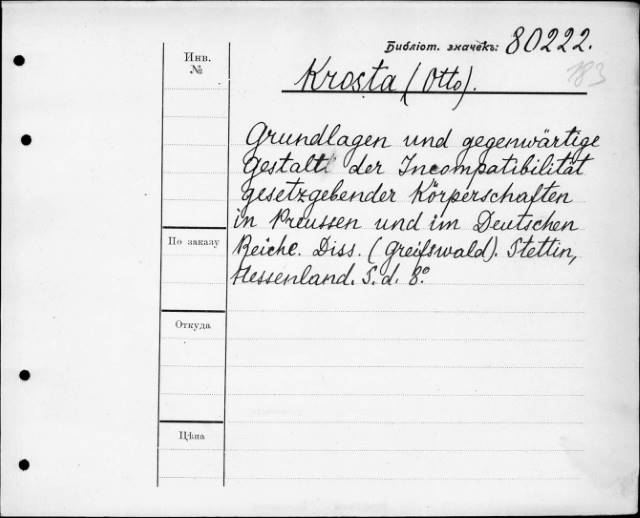 Библіот. значекъ: 80222.
183
Инв. №
Krosta (Otto).
Grundlagen und gegenwärtige
Gestalt der Incompatibilität
gesetzgebender Körperschaften
in Preussen und im Deutschen
Reiche. Diss. (Greifswald). Stettin,
Hessenland. S. d. 8º
По заказу
Откуда
Цѣна